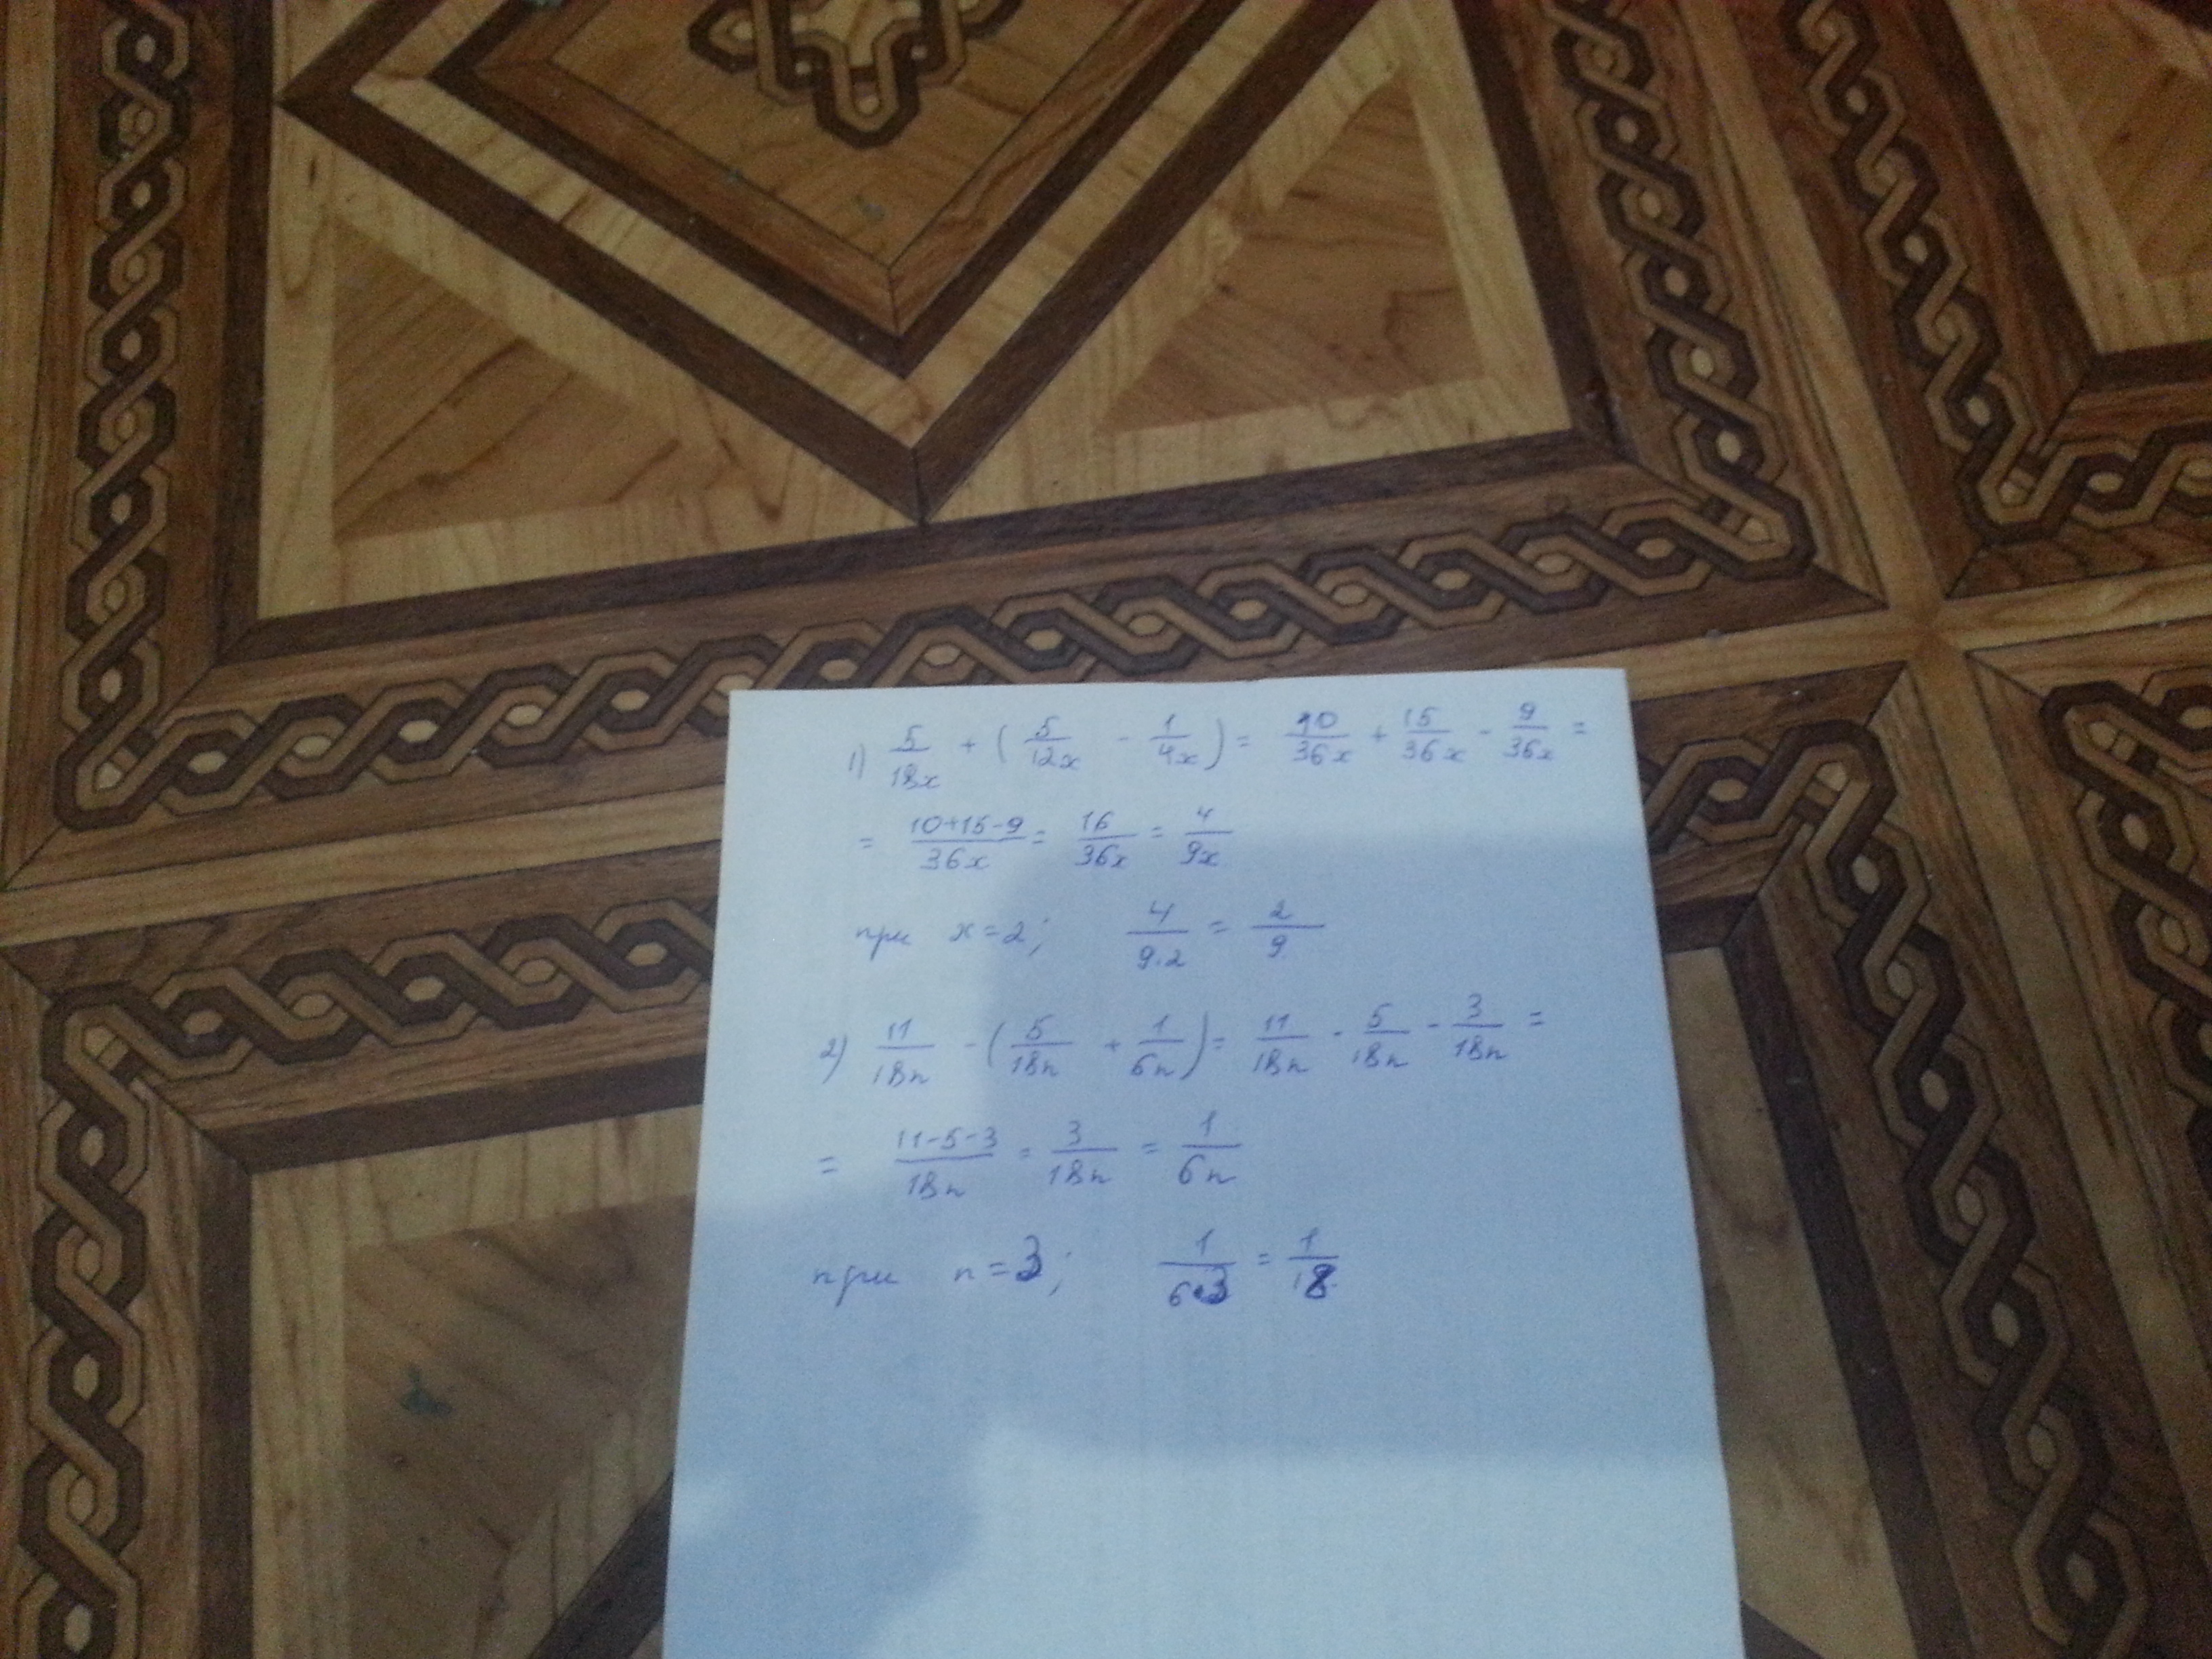 1) 5/18x + (5/12x - 1/4x) = 10/36x + 15/36x - 9/36x =
= 10+15-9/36x = 16/36x = 4/9x
при x=2; 4/9·2 = 2/9
2) 11/18n - (5/18n + 1/6n) = 11/18n - 5/18n - 3/18n =
= 11-5-3/18n = 3/18n = 1/6n
при n=3; 1/6·3 = 1/18